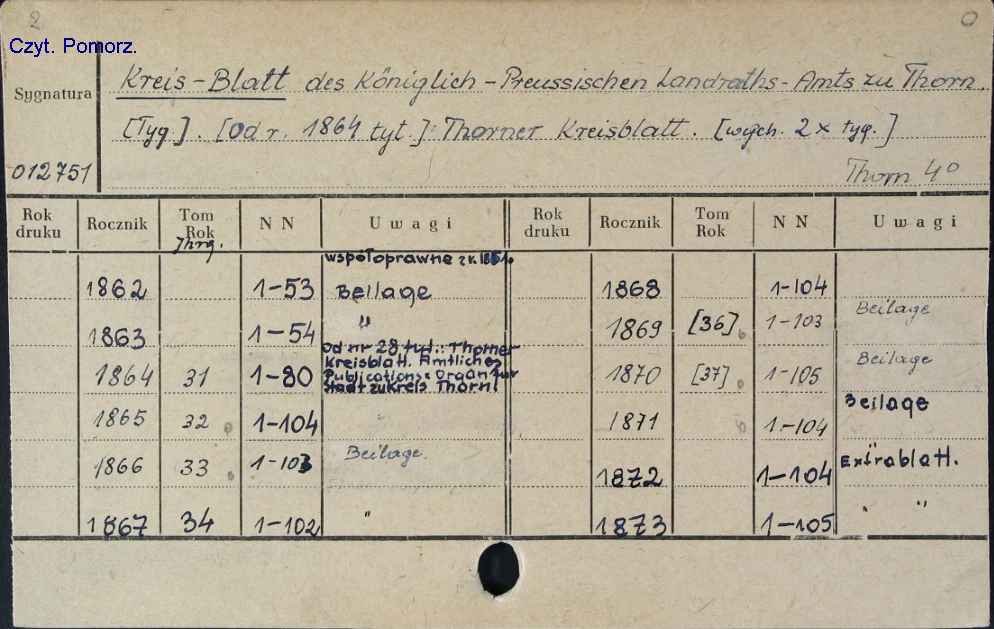 2
0
Czyt. Pomorz.
Sygnatura
012751
Kreis-Blatt des Königlich-Preussischen Landraths-Amts zu Thorn.
[Tyg.]. [Od r. 1864 tyt.]: Thorner Kreisblatt. [wych. 2 x tyg.]
Thorn 4°
Rok druku Rocznik Tom Rok N N Uwagi Rok druku Rocznik Tom Rok N N Uwagi
Jhrg.
współoprawne z r. 1861.
1862 1-53 Beilage 1868 1-104
1863 1-54 " 1869 [36]. 1-103 Beilage
Od nr 28 tyt.: Thorner
Kreisblatt. Amtliches
Publications-Organ für
Stadt zu Kreis Thorn
1864 31 1-80 1870 [37]. 1-105 Beilage
1865 32 1-104 1871 1-104 Beilage
1866 33 1-103 Beilage. 1872 1-104 Extrablatt.
1867 34 1-102 " 1873 1-105 "